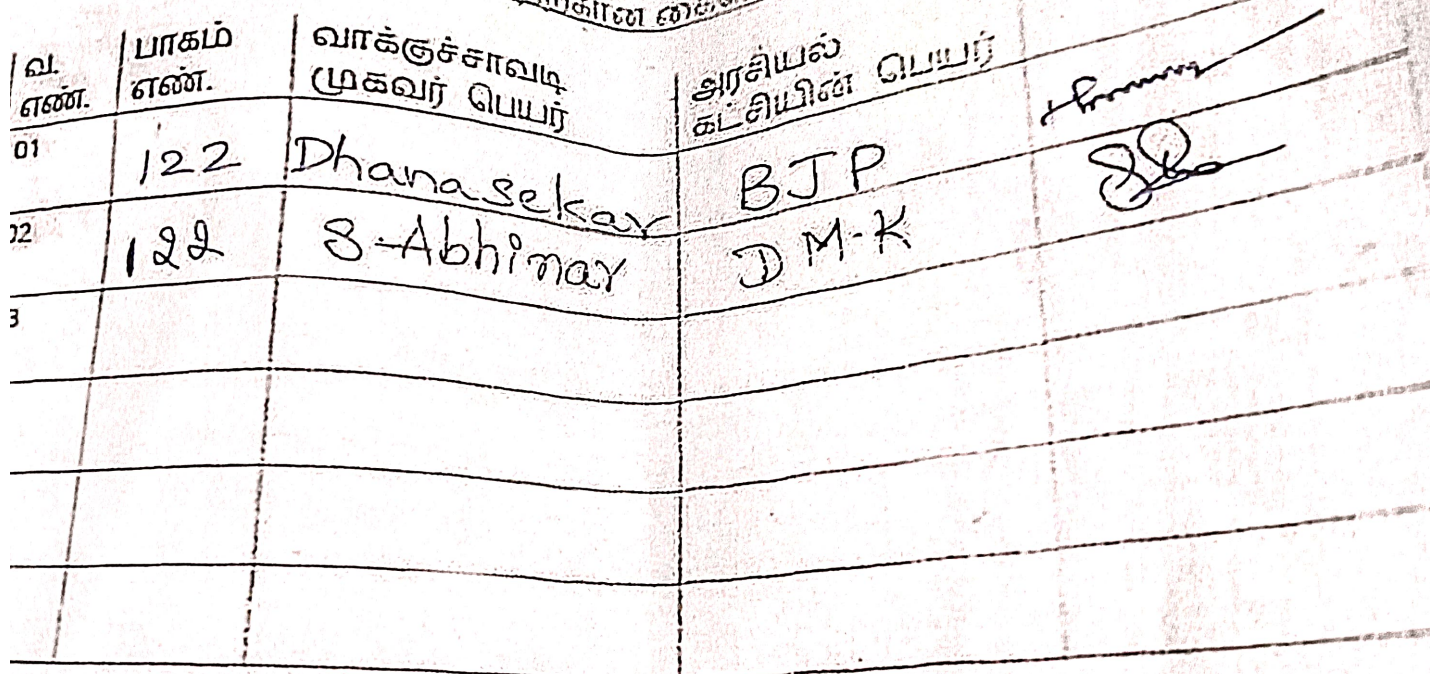 வ. எண். பாகம் எண். வாக்குச்சாவடி முகவர் பெயர் அரசியல் கட்சியின் பெயர்
01 122 Dhanasekar BJP
02 122 S-Abhinav DM-K
3